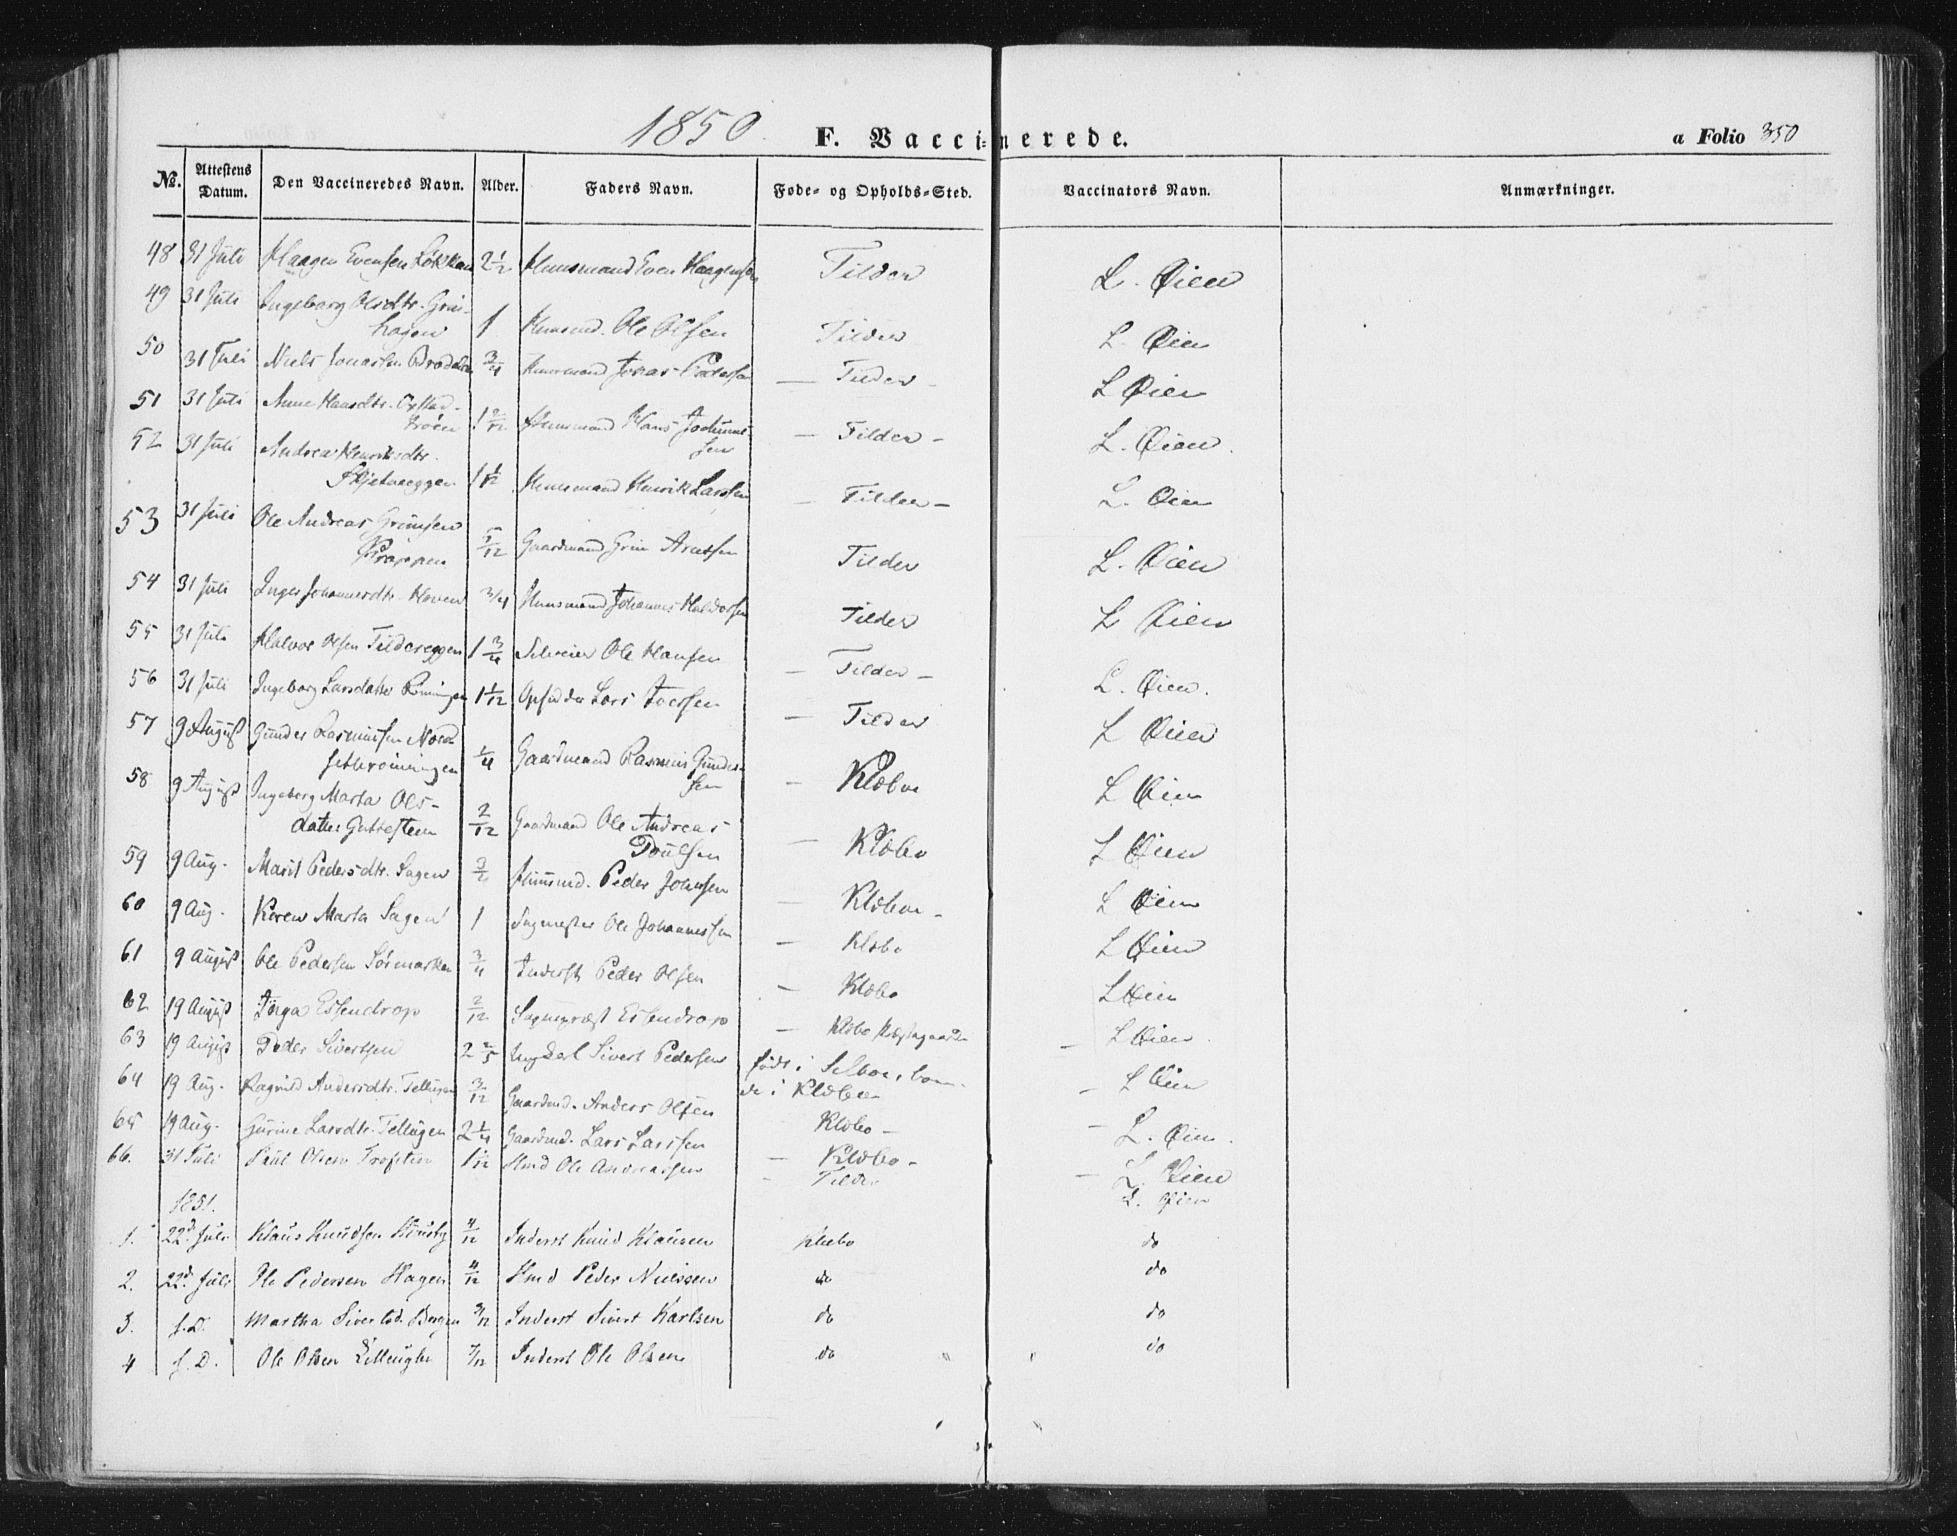 1850.
F. Vaccinerede.
a Folio 350
No. Attestens Datum. Den Vaccineredes Navn. Alder. Faders Navn. Føde- og Opholds-Sted. Vaccinators Navn. Anmærkninger.
48 31 Juli Haagen Evensen Løkkan 2 1/2 Huusmand Even Haagensen Tilder L. Øien
49 31 Juli Ingeborg Olsdtr. Grin-
hagen 1 Huusmd. Ole Olsen Tilder L. Øien
50 31 Juli Niels Jonassen 3/4 Huusmand Jonas Pedersen — Tilder - L Øien
51 31 Juli Anne Hansdtr.
trøen 1 2/12 Huusmand Hans
sen — Tilder - L. Øien.
52 31 Juli Andrea Henriksdtr.
1 1/12 Huusmand Henrik Larssen — Tilder - L. Øien
53 31 Juli Ole Andreas Grimsen
Kroppen 5/12 Gaardmand Grim Arntsen Tilder L. Øien
54 31 Juli Inger Johannesdtr. Hoven 3/4 Huusmand Johannes Haldorsen Tilder L Øien
55 31 Juli Halvor Olsen Tildereggen 1 3/4 Selveier Ole Hansen — Tilder - L. Øien.
56 31 Juli Ingeborg Larsdatter 1 1/12 Opsidder Lars Iversen — Tilder L Øien
57 9 August Gunder Rasmussen Nord
1/4 Gaardmand Rasmus Gunder-
sen — Klæbu L Øien
58 9 August Ingeborg Marta Ols-
datter 2/12 Gaardmand Ole Andreas
Poulsen — Klæbo L Øien
59 9 Aug. Marit Pedersdtr. Sagen Huusmd. Peder Johnsen — Klæbu - L Øien
60 9 Aug. Karen Marta Sagen 1 Sagmester Ole Johannessen — Klæbo L Øien
61 9 August Ole Pedersen Sørmarken 3/4 Inderst Peder Olsen — Klæbo L Øien
62 19 August Essendrop 2/12 Sognepræst Essendrop — Klæbo Præstegaard — L Øien.
63 19 August Peder Sivertsen 2 2/5 Ungkarl Sivert Pedersen født i Selboe, boen-
de i Klæbu — L Øien
64 19 Aug. Ragnild Andersdtr. Tellugen 3/12 Gaardmd. Anders Olsen Klæbo - — L. Øien.
65 19 Aug. Gurine Larsdtr. Tellugen 2 1/4 Gaardmd. Lars Larssen — Klæbo - — L. Øien
66. 31 Juli Paul Olsen 1 1/12 Hmd Ole Andreassen - Tilder L. Øien
1851.
1. 22d Juli Klaus Knudsen Huusby 4/12 Inderst Knud Klausen Klæbo do
2. 22d. Juli Ole Pedersen Hagen 4/12 Hmd Peder Nielssen do do
3. s. D. Martha Sivertsd. Bergen 3/12 Inderst Sivert Karlsen do do
4 s. D. Ole Olsen 7/12 Inderst Ole Olsen do do